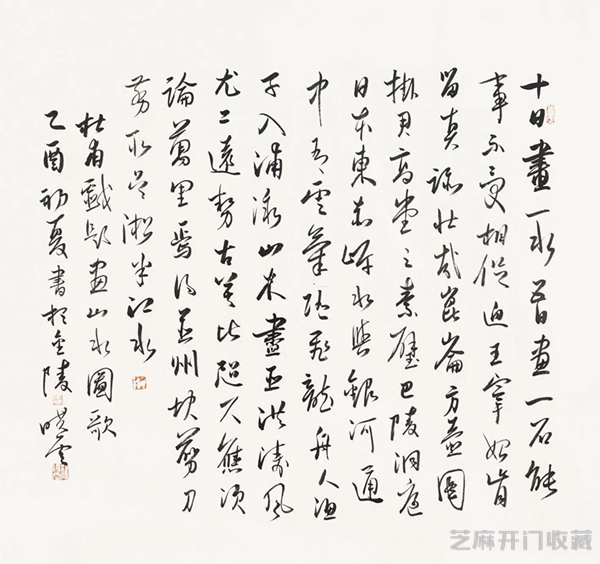 十日畫一水五日畫一石能
事不受相促迫王宰始肯
留真跡壯哉崑崙方壺圖
掛君高堂之素壁巴陵洞庭
日本東赤岸水與銀河通
中有雲氣隨飛龍舟人漁
子入浦溆山木盡亞洪濤風
尤工遠勢古莫比咫尺應須
論萬里焉得并州快剪刀
剪取吳淞半江水
杜甫戲題畫山水圖歌
乙酉初夏書於金陵曉雲
芝麻开门收藏